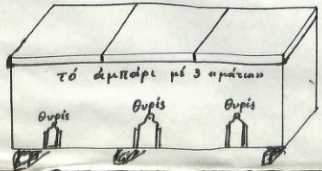 τό ἀμπάρι μέ 3 «μάτια»
θυρίς θυρίς θυρίς